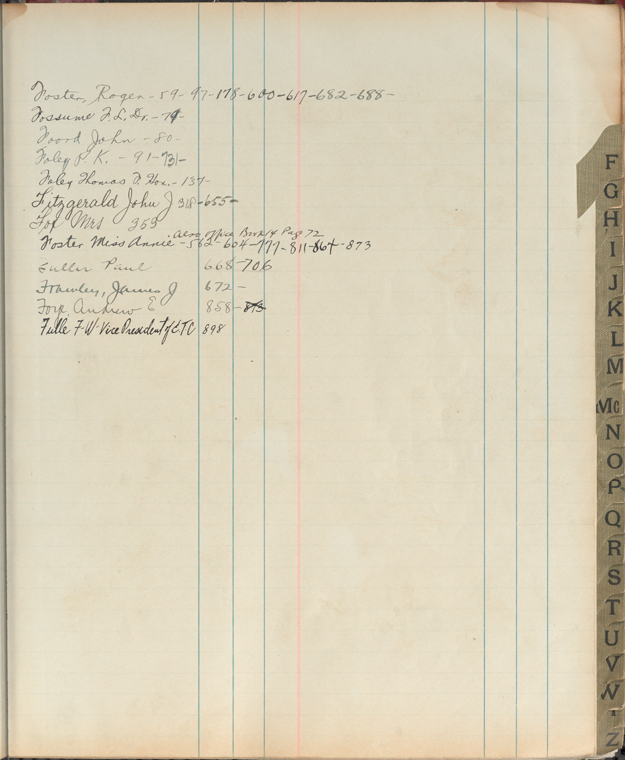 Foster, Roger - 59 - 97 - 178 - 600 - 617 - 682 - 688 -
Fossume F. L. Dr. - 79 -
Foord John - 80 -
Foley P. K. - 91 - 731 -
Foley Thomas F. Hon. - 137 -
Fitzgerald John J 318 - 655 -
Fox Mrs 359
Also office Book 14 Page 72
Foster Miss Annie - 562 - 604 - 777 - 811 - 864 - 873
Fuller Paul 668 - 706
Frawley, James J 672 -
Andrew E 858 - 873
Fulle F. W. Vice President of ETC 898
F
G
H
I
J
K
L
M
Mc
N
O
P
Q
R
S
T
U
V
W
Z